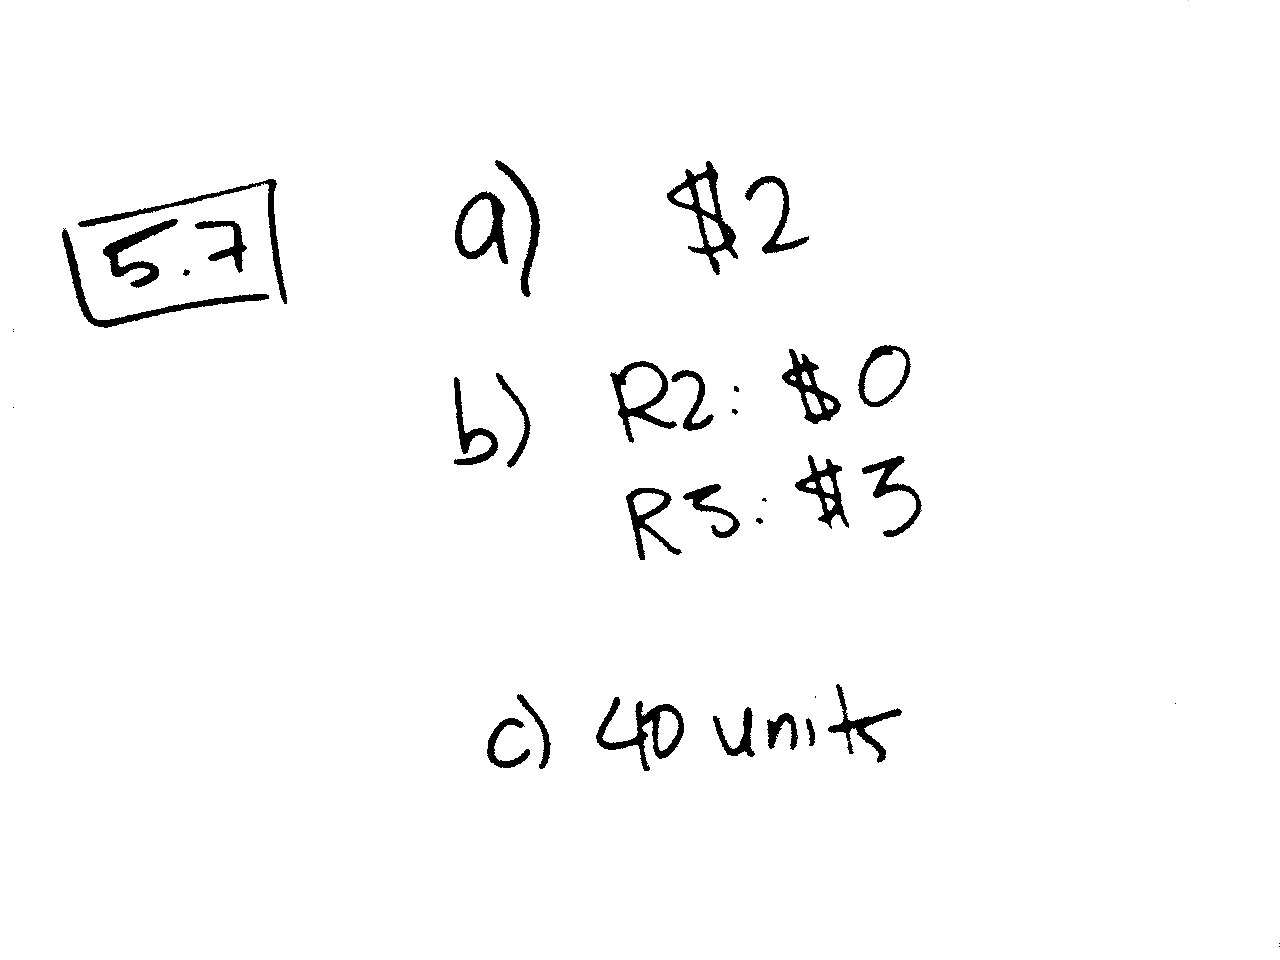 5.7
a) $2
b) R2: $0
R3: $3
c) 40 units